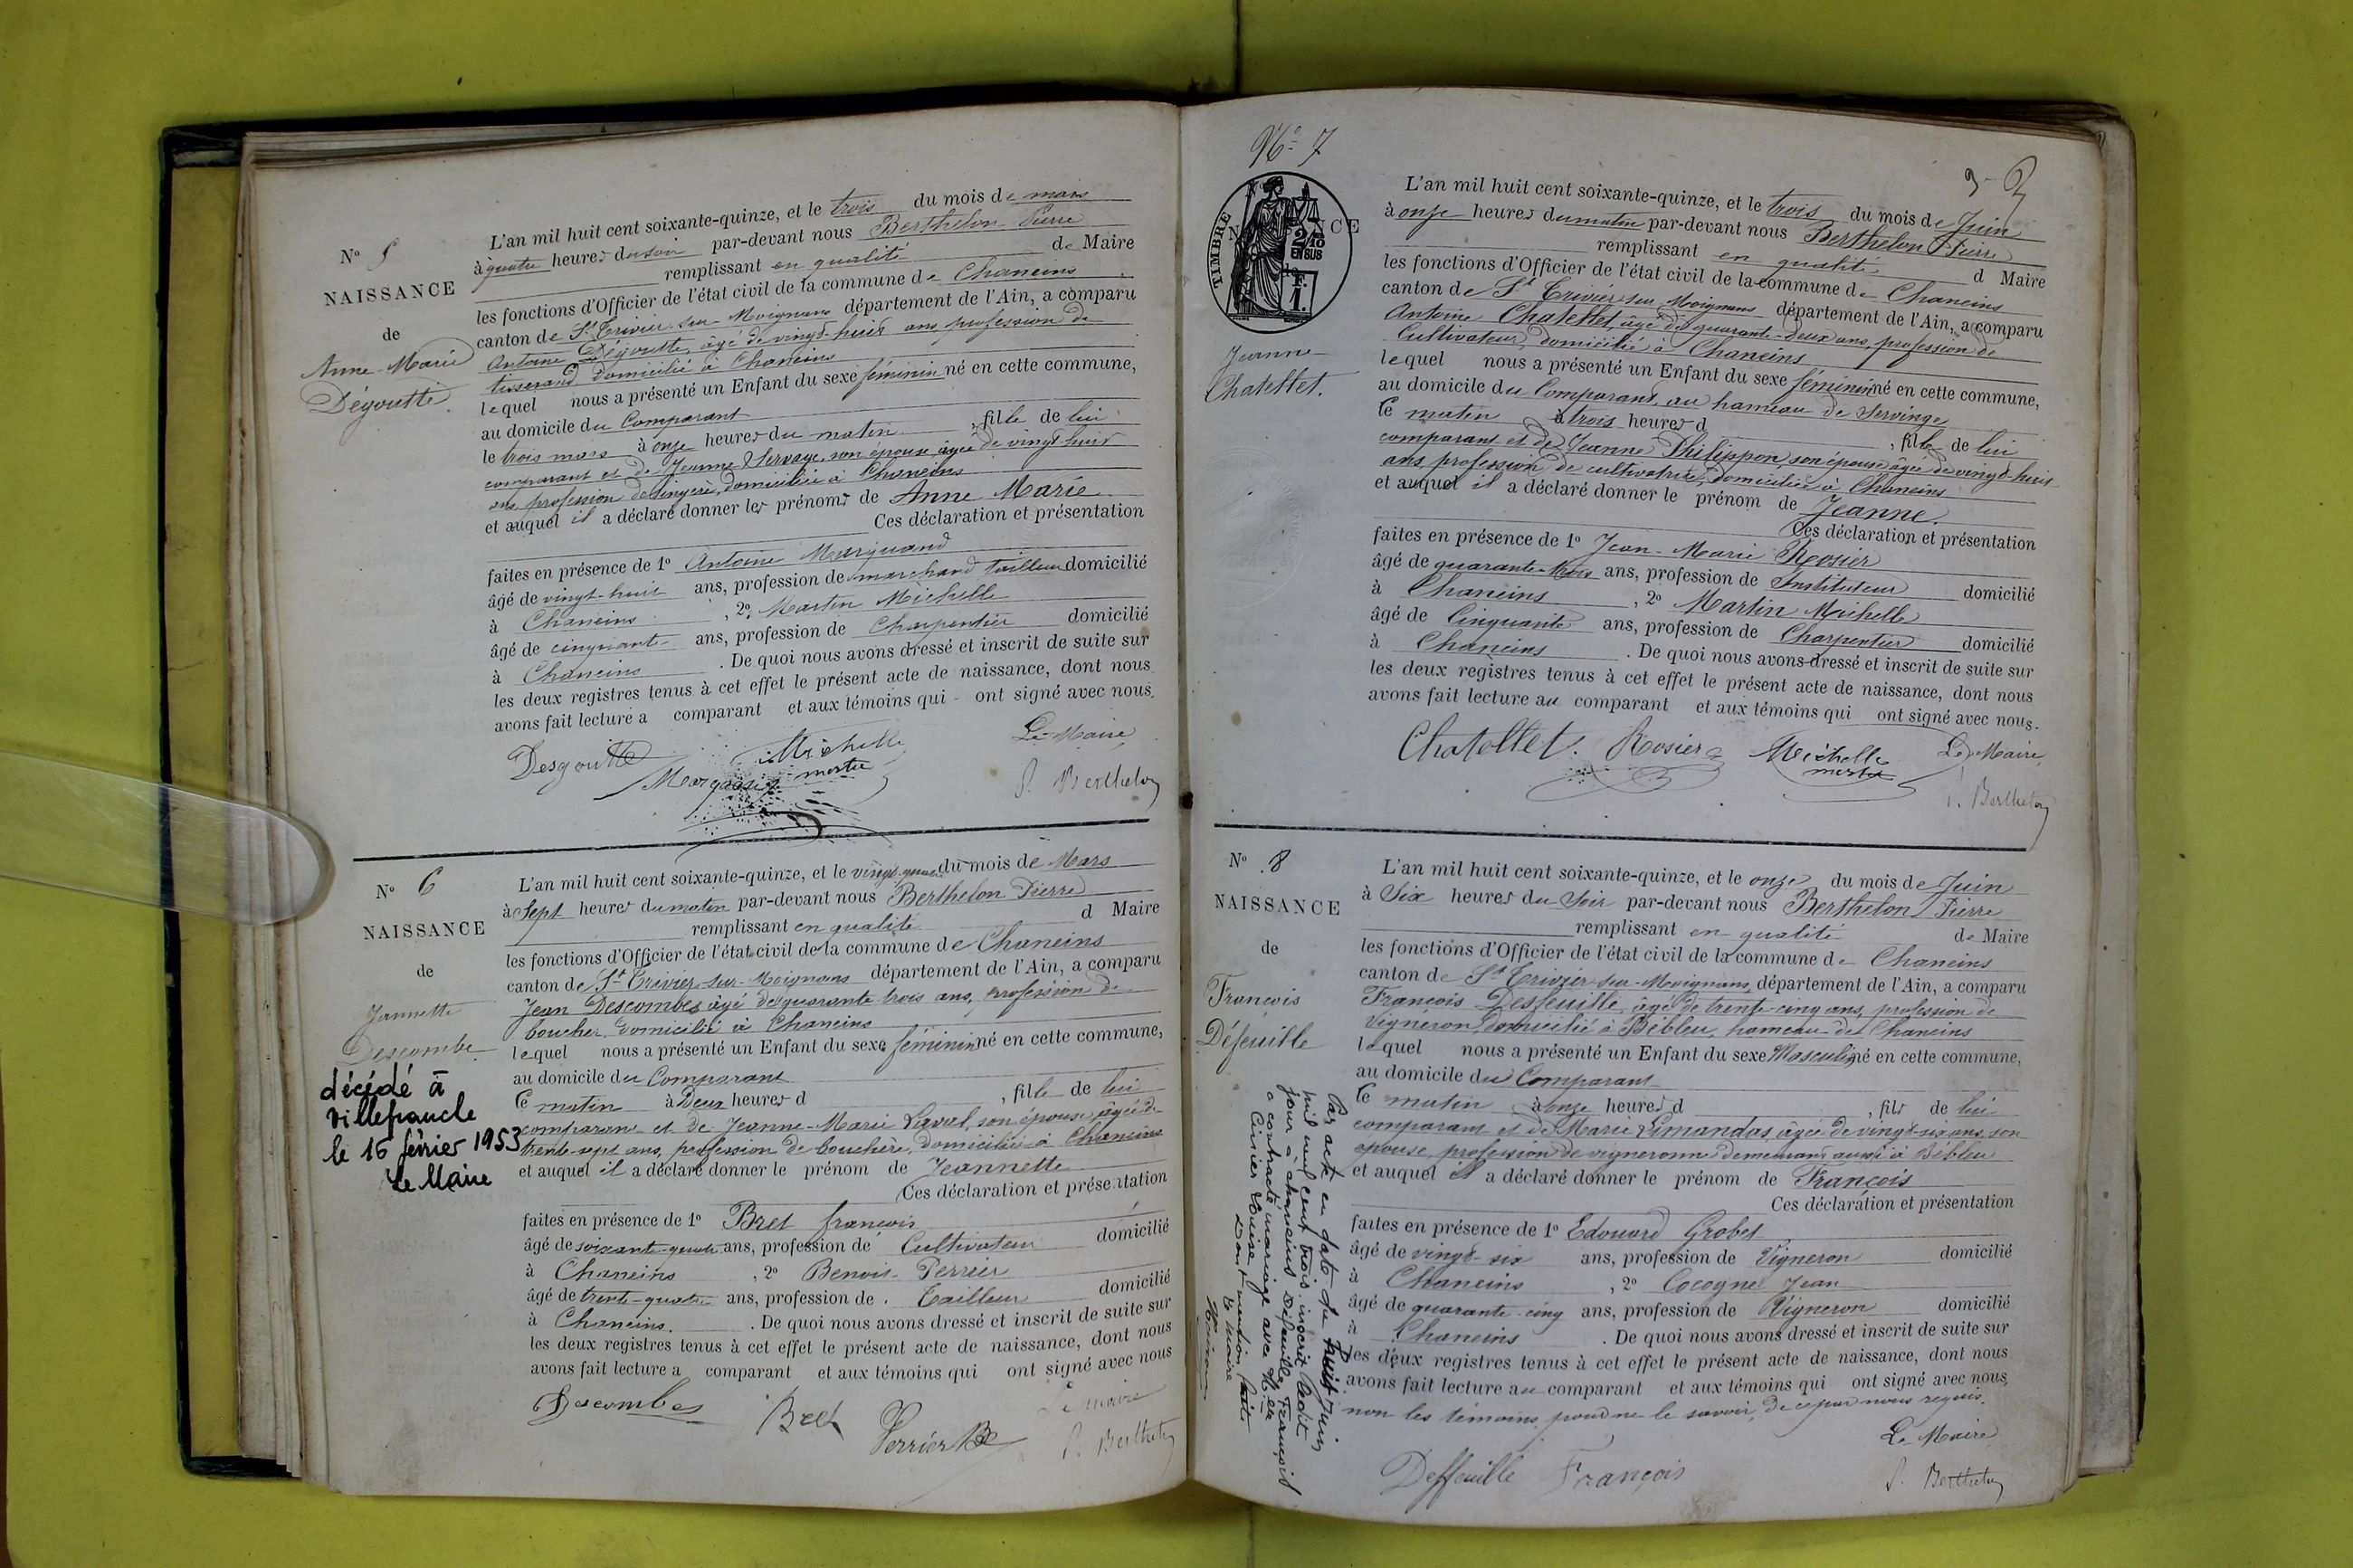 N° 5
NAISSANCE
de
Anne Marie
Dégoutte
L'an mil huit cent soixante-quinze, et le trois du mois de mars
à quatre heures du soir par-devant nous Berthelon Pierre
remplissant en qualité de Maire
les fonctions d'Officier de l'état civil de la commune de Chaneins
canton de St Trivier-sur-Moignans département de l'Ain, a comparu
Antoine Dégoutte, âgé de vingt-huit ans, profession de
tisserand domicilié à Chaneins
lequel nous a présenté un Enfant du sexe féminin né en cette commune,
au domicile du Comparant
le trois mars à onze heures du matin, fille de lui
comparant et de Jeanne Servage, son épouse, âgée de vingt huit
ans, profession de lingère, domiciliée à Chaneins
et auquel il a déclaré donner les prénoms de Anne Marie
Ces déclaration et présentation
faites en présence de 1° Antoine Marquand
âgé de vingt-huit ans, profession de marchand tailleur domicilié
à Chaneins, 2° Martin Michelle
âgé de cinquante ans, profession de Charpentier domicilié
à Chaneins. De quoi nous avons dressé et inscrit de suite sur
les deux registres tenus à cet effet le présent acte de naissance, dont nous
avons fait lecture a comparant et aux témoins qui - ont signé avec nous.
Desgoutte Michelle Le Maire
martin
P. Berthelon
N° 6
NAISSANCE
de
Jannette
Descombe
décédé à
Villefranche
le 16 février 1953
Le Maire
L'an mil huit cent soixante-quinze, et le du mois de Mars
à Sept heures du matin par-devant nous Berthelon Pierre
remplissant en qualité d Maire
les fonctions d'Officier de l'état civil de la commune de Chaneins
canton de St Trivier-sur-Moignans département de l'Ain, a comparu
Jean Descombes âgé de quarante trois ans, profession de
boucher domicilié à Chaneins
lequel nous a présenté un Enfant du sexe féminin né en cette commune,
au domicile du Comparant
Ce matin à Deux heures d , fille de lui
comparant et de Jeanne-Marie Laval, son épouse, âgée de
trente-sept ans, profession de bouchère, domiciliée à Chaneins
et auquel il a déclaré donner le prénom de Jeannette
Ces déclaration et présentation
faites en présence de 1° Bret françois
âgé de ans, profession de Cultivateur domicilié
à Chaneins, 2° Benoit Perrier
âgé de trente-quatre ans, profession de Tailleur domicilié
à Chaneins. De quoi nous avons dressé et inscrit de suite sur
les deux registres tenus à cet effet le présent acte de naissance, dont nous
avons fait lecture a comparant et aux témoins qui ont signé avec nous
Descombes Bret Perrier Le maire
P. Berthelon
N° 7
TIMBRE
2/10
EN SUS
1 F.
Jeanne
Chatellet.
L'an mil huit cent soixante-quinze, et le trois du mois de Juin
à onze heures du matin par-devant nous Berthelon Pierre
remplissant en qualité d Maire
les fonctions d'Officier de l'état civil de la commune de Chaneins
canton de St Trivier-sur-Moignans département de l'Ain, a comparu
Antoine Chatellet, âgé de quarante-deux ans, profession de
Cultivateur, domicilié à Chaneins
lequel nous a présenté un Enfant du sexe féminin né en cette commune,
au domicile du Comparant, au hameau de Servinges
Ce matin à trois heures d , fille de lui
comparant et de Jeanne Philippon, son épouse âgée de vingt-huit
ans, profession de cultivatrice, domiciliée à Chaneins
et auquel il a déclaré donner le prénom de Jeanne.
Ces déclaration et présentation
faites en présence de 1° Jean-Marie Rosier
âgé de quarante-trois ans, profession de Instituteur domicilié
à Chaneins, 2° Martin Michelle
âgé de Cinquante ans, profession de Charpentier domicilié
à Chaneins. De quoi nous avons dressé et inscrit de suite sur
les deux registres tenus à cet effet le présent acte de naissance, dont nous
avons fait lecture au comparant et aux témoins qui ont signé avec nous.
Chatellet. Rosier Michelle Le Maire
martin
P. Berthelon
N° 8
NAISSANCE
de
François
Défeuille
Par acte en date du huit Juin
mil neuf cent trois inscrit ledit
jour à chaneins Défeuille François
a contracté mariage avec
Louise
Dont mention faite
Le Maire
L'an mil huit cent soixante-quinze, et le onze du mois de Juin
à Six heures du Soir par-devant nous Berthelon Pierre
remplissant en qualité de Maire
les fonctions d'Officier de l'état civil de la commune de Chaneins
canton de St Trivier-sur-Moignans, département de l'Ain, a comparu
François Desfeuille, âgé de trente-cinq ans, profession de
Vigneron domicilié à Bibleu, hameau de Chaneins
lequel nous a présenté un Enfant du sexe Masculin né en cette commune,
au domicile du Comparant
Ce matin à onze heures d , fils de lui
comparant et de Marie Limandas âgée de vingt-six ans, son
épouse, profession de vigneronne demeurant aussi à Bibleu
et auquel il a déclaré donner le prénom de François
Ces déclaration et présentation
faites en présence de 1° Edouard Grobet
âgé de vingt-six ans, profession de Vigneron domicilié
à Chaneins, 2° Cocogne Jean
âgé de quarante-cinq ans, profession de Vigneron domicilié
à Chaneins. De quoi nous avons dressé et inscrit de suite sur
les deux registres tenus à cet effet le présent acte de naissance, dont nous
avons fait lecture au comparant et aux témoins qui ont signé avec nous,
non les témoins pour ne le savoir, de ce par nous requis.
Le Maire
Deffeuille François P. Berthelon